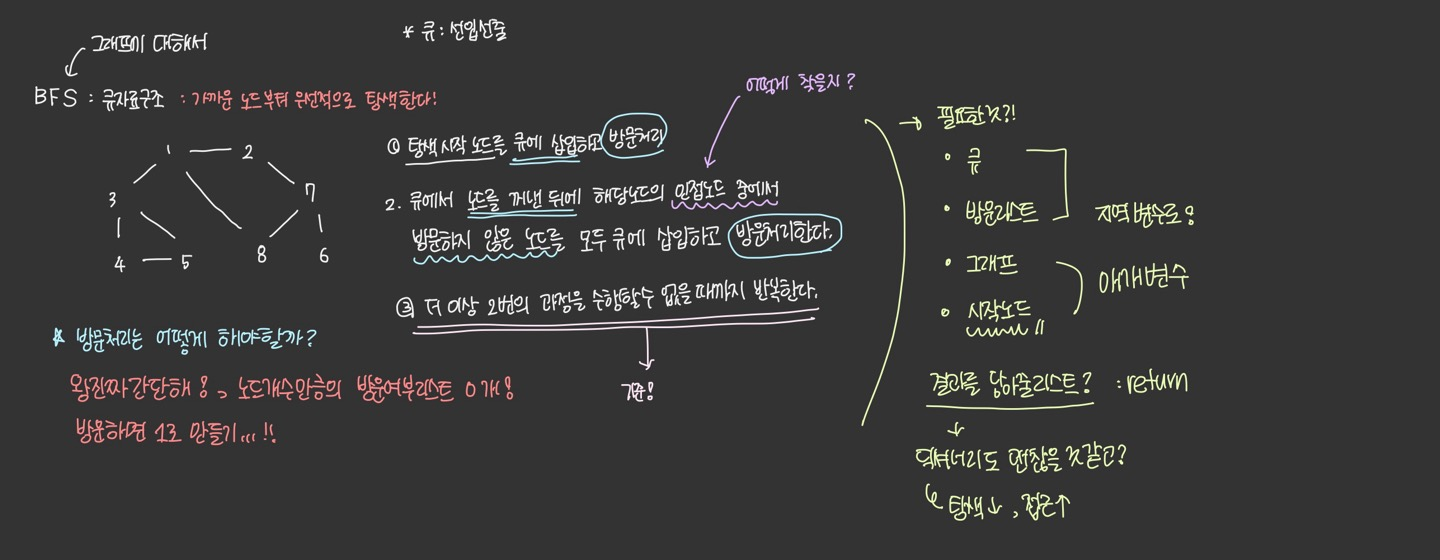 * 큐 : 선입선출
그래프에 대해서
BFS : 큐자료구조 : 가까운 노드부터 우선적으로 탐색한다!
1 2
3 7
4 5 8 6
어떻게 찾을지?
① 탐색 시작 노드를 큐에 삽입하고 방문처리
2. 큐에서 노드를 꺼낸 뒤에 해당노드의 인접노드 중에서
방문하지 않은 노드를 모두 큐에 삽입하고 방문처리한다.
③ 더 이상 2번의 과정을 수행할수 없을 때까지 반복한다.
기준!
* 방문처리는 어떻게 해야할까?
왕진짜간단해!, 노드개수만큼의 방문여부리스트 0개!
방문하면 1로 만들기...!!
→ 필요한것?!
• 큐
• 방문리스트
지역변수로!
• 그래프
• 시작노드
매개변수
결과를 담아줄리스트? : return
딕셔너리도 괜찮을 것 같고?
탐색↓, 접근↑